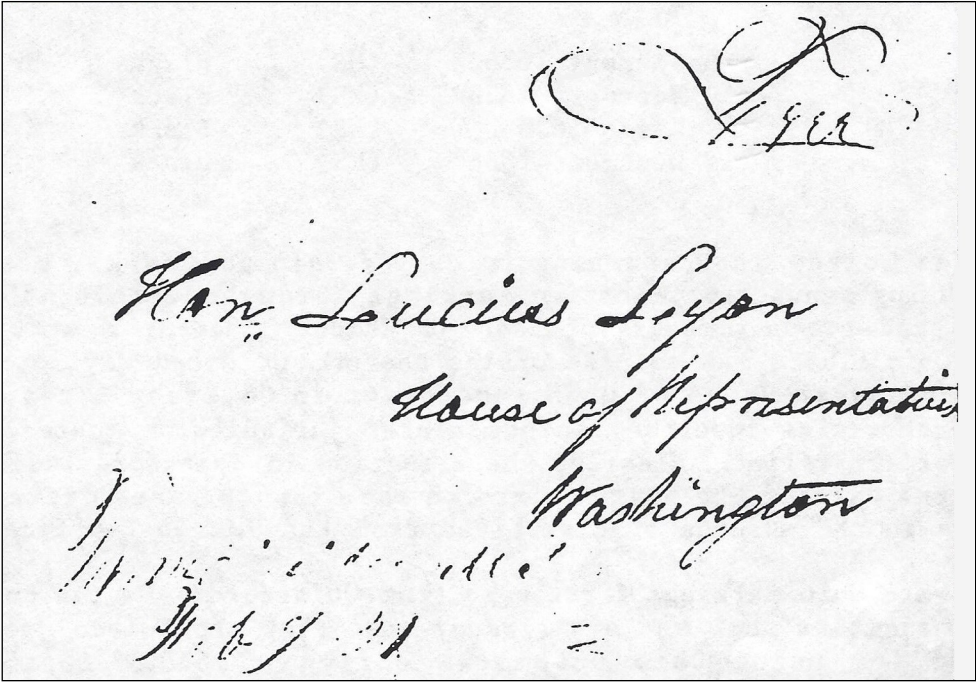 Free
Hon. Lucius Lyon
House of Representativ
Washington
Feb 9